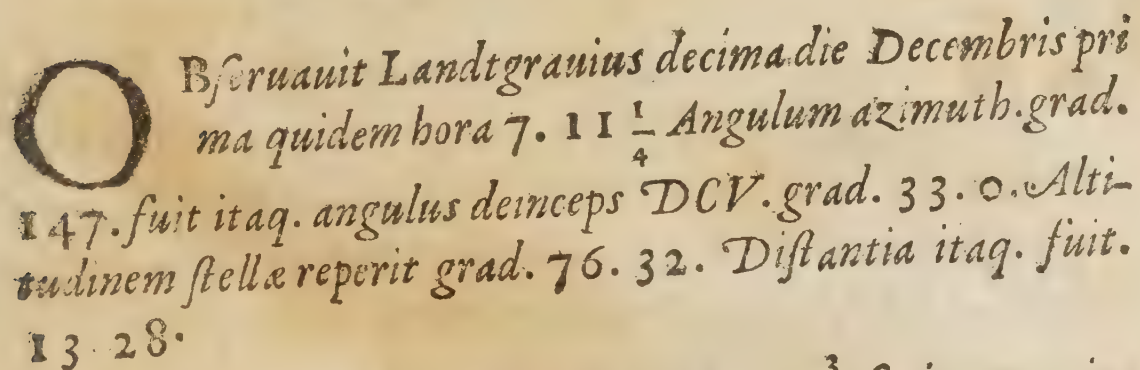 OBſeruauit Landtgrauius decima die Decembris pri
ma quidem hora 7. 11 1/4 Angulum azimuth. grad.
147. fuit itaq. angulus deinceps DCV. grad. 33. 0. Alti-
tudinem ſtellæ reperit grad. 76. 32. Diſtantia itaq. fuit.
13 28.